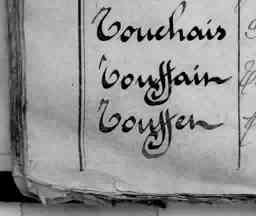 Touchais
Touffain
Touffen